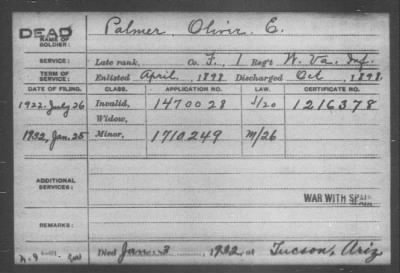 DEAD
NAME OF SOLDIER: Palmer, Oliver E.
SERVICE: Late rank, Co. F, 1 Reg't W. Va. Inf.
TERM OF SERVICE: Enlisted April, 1898. Discharged Oct, 1898.
DATE OF FILING. CLASS. APPLICATION NO. LAW. CERTIFICATE NO.
1922, July 26 Invalid, 1470028 J/20 1216378
Widow,
1932, Jan. 25 Minor, 1710249 M/26
ADDITIONAL SERVICES:
WAR WITH SPAIN
REMARKS:
Died Jan. 3 1932 at Tucson, Ariz